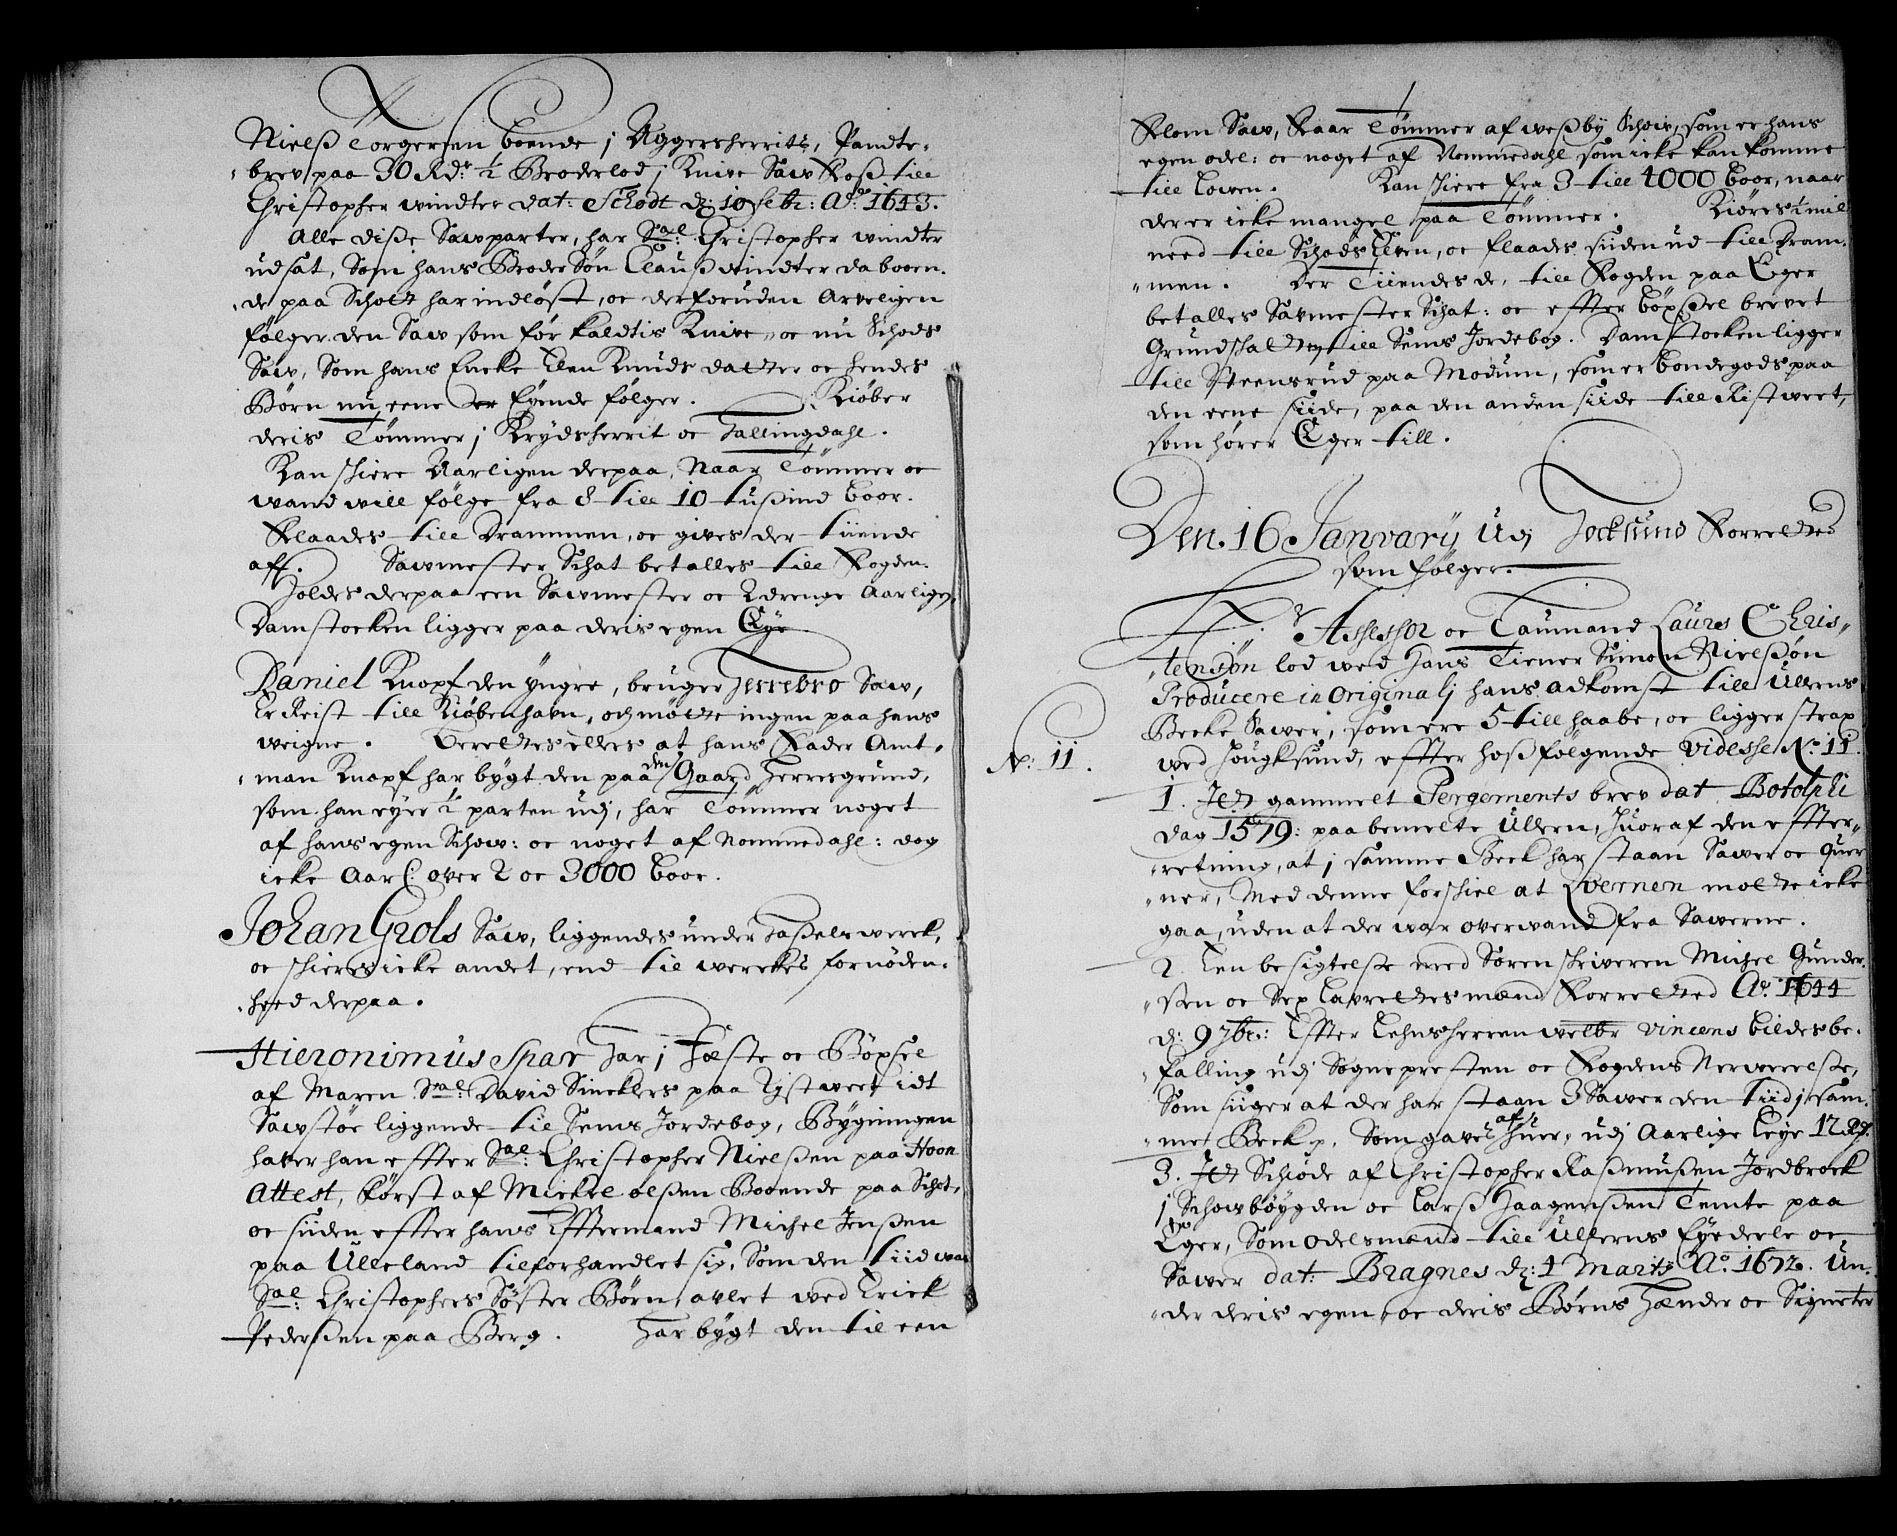 Nielß Torgersen boende j Aggersherrit, Pandte-
brev paa 30 Rdr ½ Broderlod j Knive Saw Foß till
Christopher windter dat: Schodt d: 10 febr: Ao: 1643.
Alle diße Sawparter, har Sal: Christopher windter
udsat, Som hans Broder Søn Clauß windter da booen-
de paa Scholt har indløst, oc derforuden Arveligen
følger den Saw som før kaldtis Knive, oc nu Schods
Saw, Som hans Encke Elen Knuds datter oc hendes
Børn nu eene der Eyende følger. Kiøber
deris Tømmer j Krydsherrit oc Hallingdahl.
Kan schiere Aarligen derpaa, Naar Tømmer oc
wand will følge fra 8 till 10 tußind boor.
Flaades till Drammen, oc gives der tiiende
aff. Sawmester Schat betalles till Fogden.
Holdes derpaa een Sawmester oc 2 drenge Aarligen,
Damstocken ligger paa deris egen Eye
Daniel Knopf den yngre, bruger Herrebro Saw,
Er Reist till Kiøbenhavn, och møtte ingen paa hans
weigne. Berettes ellers at hans Fader Amt-
man Knopf har bygt den paa den Gaard Herresgrund,
som han eyer ½ parten udj, har Tømmer noget
af hans egen Schow: oc noget af Nommedahl: dog
icke Aarl: over 2 oc 3000 boor.
Johan Grols Saw, liggendes under Haßels werck,
oc schieres icke andet, end til werckes fornøden-
heed derpaa.
Hieronimus Spar Har j Fæste oc Bøxsel
af Maren Sal: David Sincklers paa Ristweet idt
Sawstøe liggende til Sems Jordebog, Bygningen
haver han effter Sal: Christopher Nielßen paa Hoen
Attest, først af Mickel olßen Booende paa Schot,
oc siiden effter hans Effterman Michel Jenßen
paa Ulleland tilforhandlet sig, Som den tiid war
Sal: Christophers Søster Børn, avlet wed Erick
Pederßen paa Berg. Har bygt den til een
Flom Saw, Faar Tømmer af weßby Schow, som er hans
egen odel: oc noget af Nommedahl som icke kan komme
till Lowen. Kan schiere fra 3 till 4000 boor, naar
der er icke mangel paa Tømmer. Kiøres ½ mil
need till Schods Elven, oc flaades siiden ud till Dram-
men. Der Tiiendes de, till Fogden paa Eger
betalles Sawmester Schat: oc effter bøxßel brevet
Grundschatten till Sems Jordebog. Damstocken ligger
till Steensrud paa Modum, som er bondegods paa
den eene siide, paa den anden siide till Ristweet,
som hører Eger till.
Den 16 January Udj Hocksund Forrettes
som følger.
Hr Assessor oc Laumand Laurs Chris-
tensøn lod wed Hans Tiener Simon Nielßøn
Producere in Originalj hans adkomst till Ullerns
Becke Sawer, som ere 5 till haabe, oc ligger strax
wed Hougksund, effter hoßfølgende Videsse No: 11.
No: 11.
1. Jet gammelt Pergements brev dat Botolphi
dag 1579: paa bemelte Ullern, Huoraf den effter-
retning, at j samme Beck har staan Sawer oc Quer-
ner, Med denne forschiel at Qvernen motte icke
gaa, uden at der war overwand fra Sawerne.
2. Een besigtelse med Sørenschriveren Michel Gunder-
sen oc Sex Lavrettesmænd Forretted Ao: 1644
d: 9 7br: Effter Lehnsherren welbr Vincens bildes be-
falling udj Sogneprestens oc Fogdens Nerwerelse,
Som siiger at der har staan 3 Sawer den tiid j sam-
me Beck, Som gavel af Huer, udj Aarlige Leye 12 Rdr.
3. Jet Schiøde af Christopher Raßmußen Jordbreck
j Schowbøygden oc Larß Haagenßen Temte paa
Eger, Som Odelsmænd till Ullerns Eyedeele oc
Sawer dat: Bragnes d: 4 Martij Ao. 1672. Un-
der deris egen oc deris Børns Hænder oc Signeter